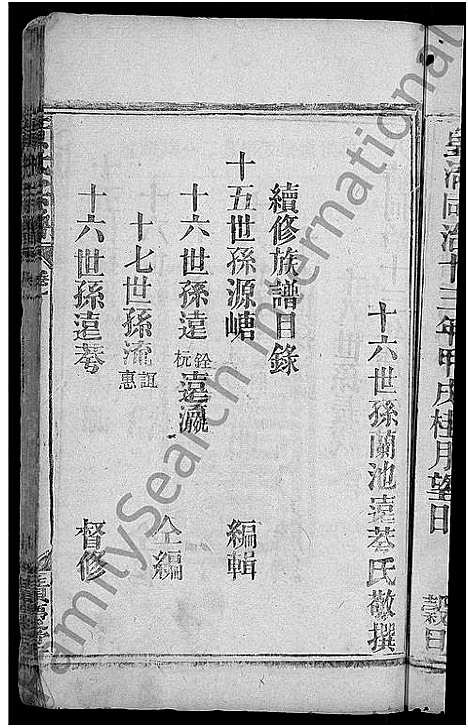 皇清同治十三年甲戌桂月望日 穀旦
十六世孫蘭池遠菶氏敬撰
續修族譜目錄
十五世孫源嵣 編輯
十六世孫遠銓杬遠瀛 仝編
十七世孫流誼惠
十六世孫遠菶 督修
amilySearch International